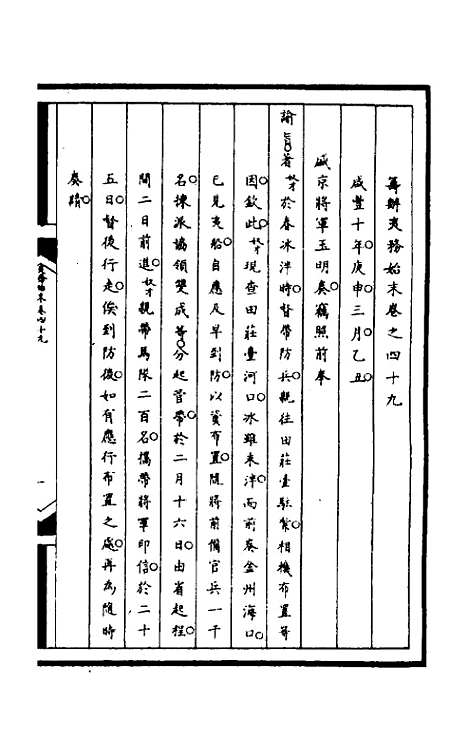 籌辦夷務始末卷之四十九
咸豐十年庚申三月乙丑。
盛京將軍玉明奏。竊照前奉
諭旨。著奴才於春冰泮時。督帶防兵。親往田莊臺駐紮。相機布置等
因。欽此。奴才現查田莊臺河口。冰雖未泮。而前奏金州海口。
已見夷船。自應及早到防。以資布置。隨將前備官兵一千
名。揀派協領雙成等。分起管帶。於二月十六日。由省起程。
間二日前進。奴才親帶馬隊二百名。攜帶將軍印信。於二十
五日。督後行走。俟到防後。如有應行布置之處。再為隨時
奏
夷務始末卷四十九
一